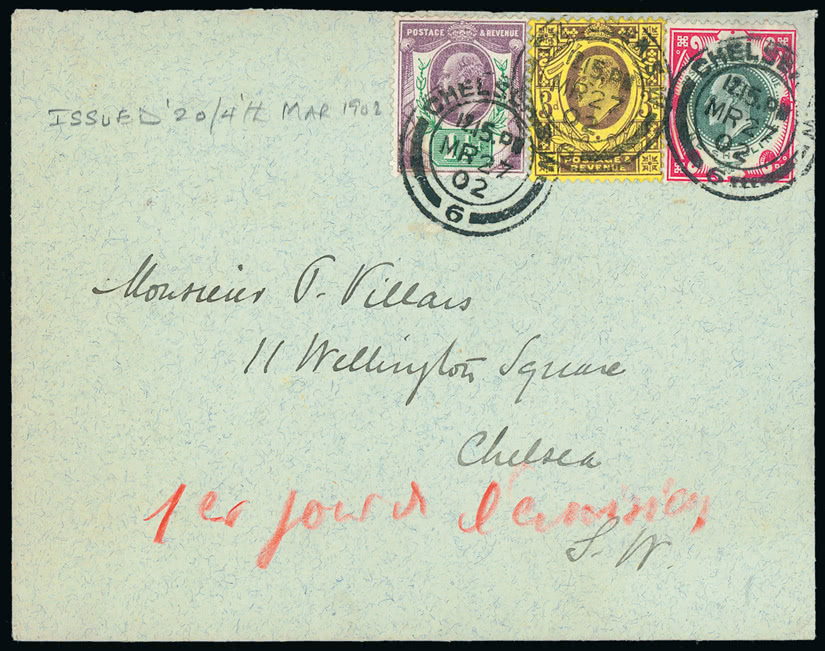 POSTAGE & REVENUE
POSTAGE & REVENUE
CHELSEA
12.15.PM
MR 27
02
6
12.15.PM
MR 27
02
CHELSEA
12.15.PM
MR 27
02
6
ISSUED '20/4'H MAR 1902
Monsieur P. Villars
11 Wellington Square
Chelsea
S. W.
1er jour de l'émission